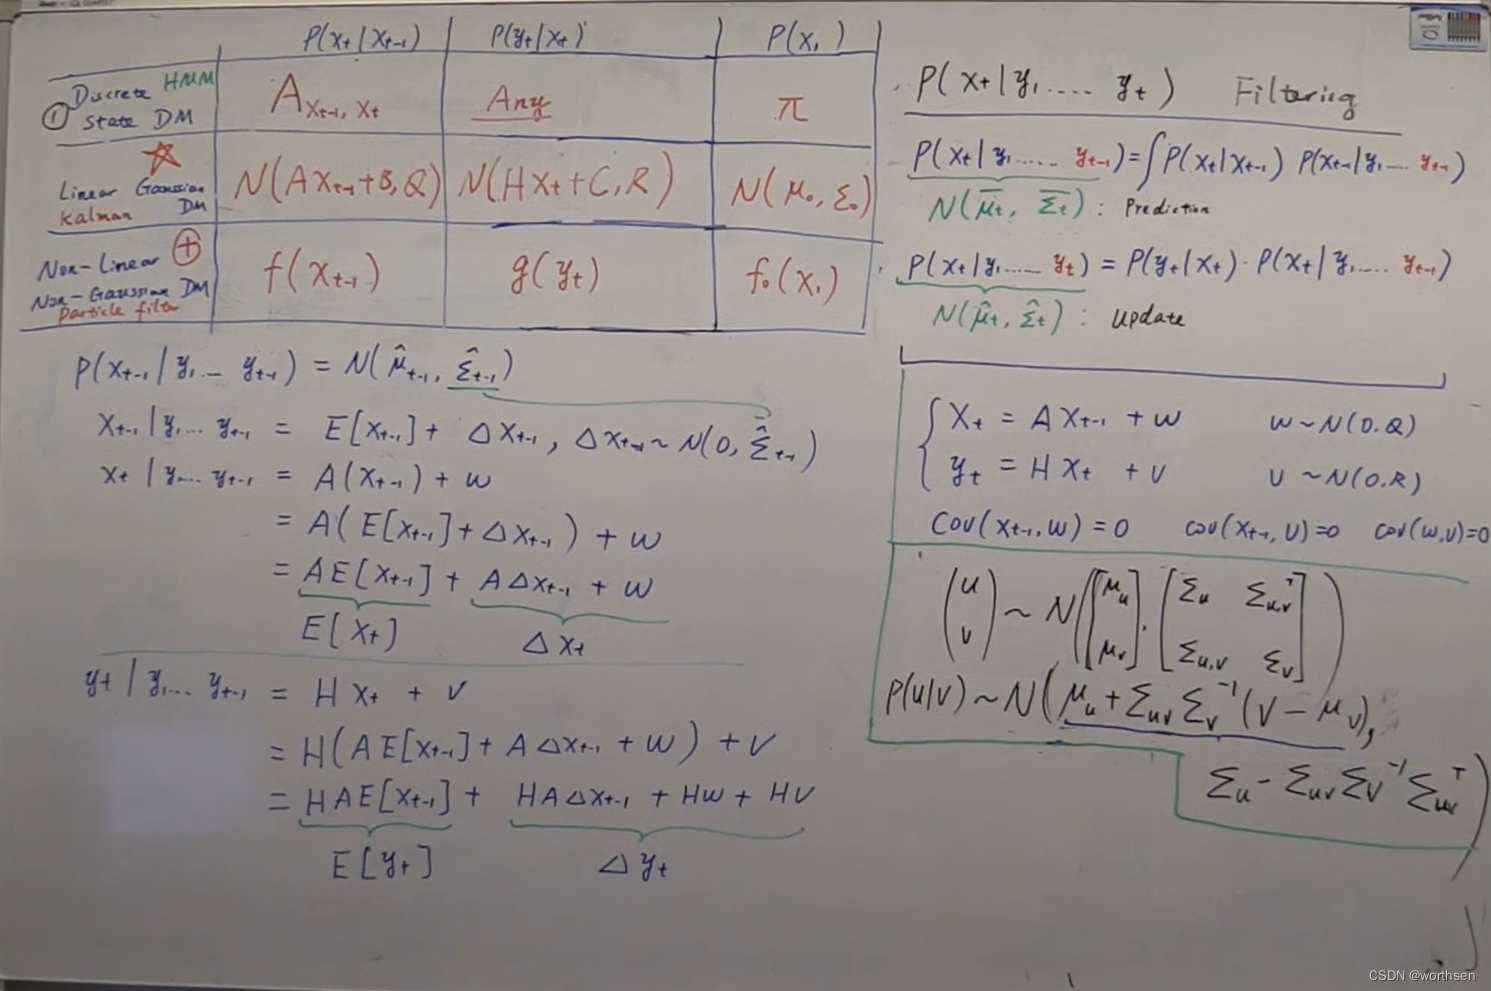 P(xₜ|xₜ₋₁) P(yₜ|xₜ) P(x₁)
① Discrete HMM State DM A_{xₜ₋₁, xₜ} Any π
☆ Linear Gaussian Kalman DM N(Axₜ₋₁+B, Q) N(Hxₜ+C, R) N(μ₀, Σ₀)
Non-Linear ⊕ Non-Gaussian DM Particle filter f(xₜ₋₁) g(yₜ) f₀(x₁)
P(xₜ₋₁|y₁... yₜ₋₁) = N(μ̂ₜ₋₁, Σ̂ₜ₋₁)
xₜ₋₁|y₁... yₜ₋₁ = E[xₜ₋₁] + Δxₜ₋₁, Δxₜ₋₁ ~ N(0, Σ̂ₜ₋₁)
xₜ|y₁... yₜ₋₁ = A(xₜ₋₁) + w
= A(E[xₜ₋₁] + Δxₜ₋₁) + w
= AE[xₜ₋₁] + AΔxₜ₋₁ + w
E[xₜ] Δxₜ
yₜ|y₁... yₜ₋₁ = Hxₜ + v
= H(AE[xₜ₋₁] + AΔxₜ₋₁ + w) + v
= HAE[xₜ₋₁] + HAΔxₜ₋₁ + Hw + Hv
E[yₜ] Δyₜ
P(xₜ|y₁.... yₜ) Filtering
P(xₜ|y₁...... yₜ₋₁) = ∫P(xₜ|xₜ₋₁) P(xₜ₋₁|y₁.... yₜ₋₁)
N(μ̄ₜ, Σ̄ₜ) : Prediction
P(xₜ|y₁...... yₜ) = P(yₜ|xₜ)·P(xₜ|y₁.... yₜ₋₁)
N(μ̂ₜ, Σ̂ₜ) : update
{ xₜ = Axₜ₋₁ + w w ~ N(0.Q)
yₜ = Hxₜ + v v ~ N(0.R)
Cov(xₜ₋₁, w) = 0 cov(xₜ₋₁, v) = 0 cov(w,v)=0
(u v) ~ N([μᵤ μᵥ]. [Σᵤ Σᵤ,ᵥᵀ Σᵤ,ᵥ Σᵥ])
P(u|v) ~ N(μᵤ + Σᵤᵥ Σᵥ⁻¹(v − μᵥ),
Σᵤ − Σᵤᵥ Σᵥ⁻¹ Σᵤᵥᵀ)
CSDN @worthsen